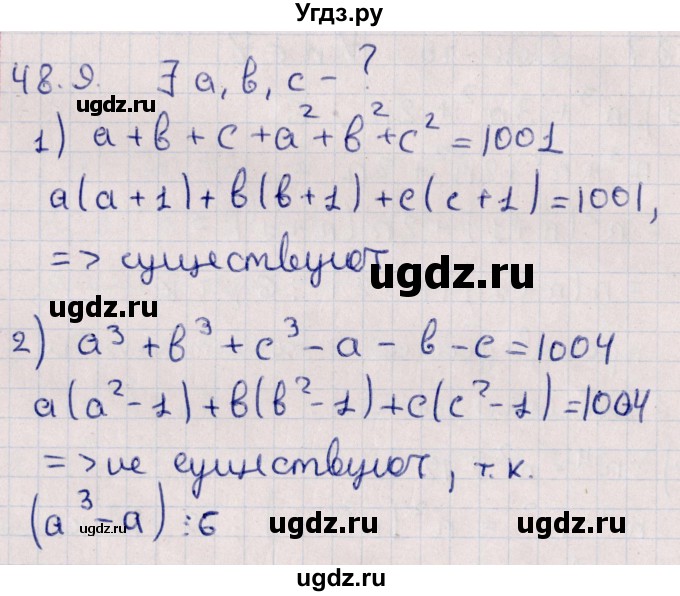 Угдз.ру
48.9. ∃ a, b, c - ?
ugdz.ru
1) a + b + c + a² + b² + c² = 1001
a(a+1) + b(b+1) + c(c+1) = 1001,
=> существуют
ugdz.ru
ugdz.ru
2) a³ + b³ + c³ - a - b - c = 1004
a(a²-1) + b(b²-1) + c(c²-1) = 1004
=> не существуют, т.к.
(a³ - a) ⋮ 6
ugdz.ru
ugdz.ru
ugdz.ru
ugdz.ru